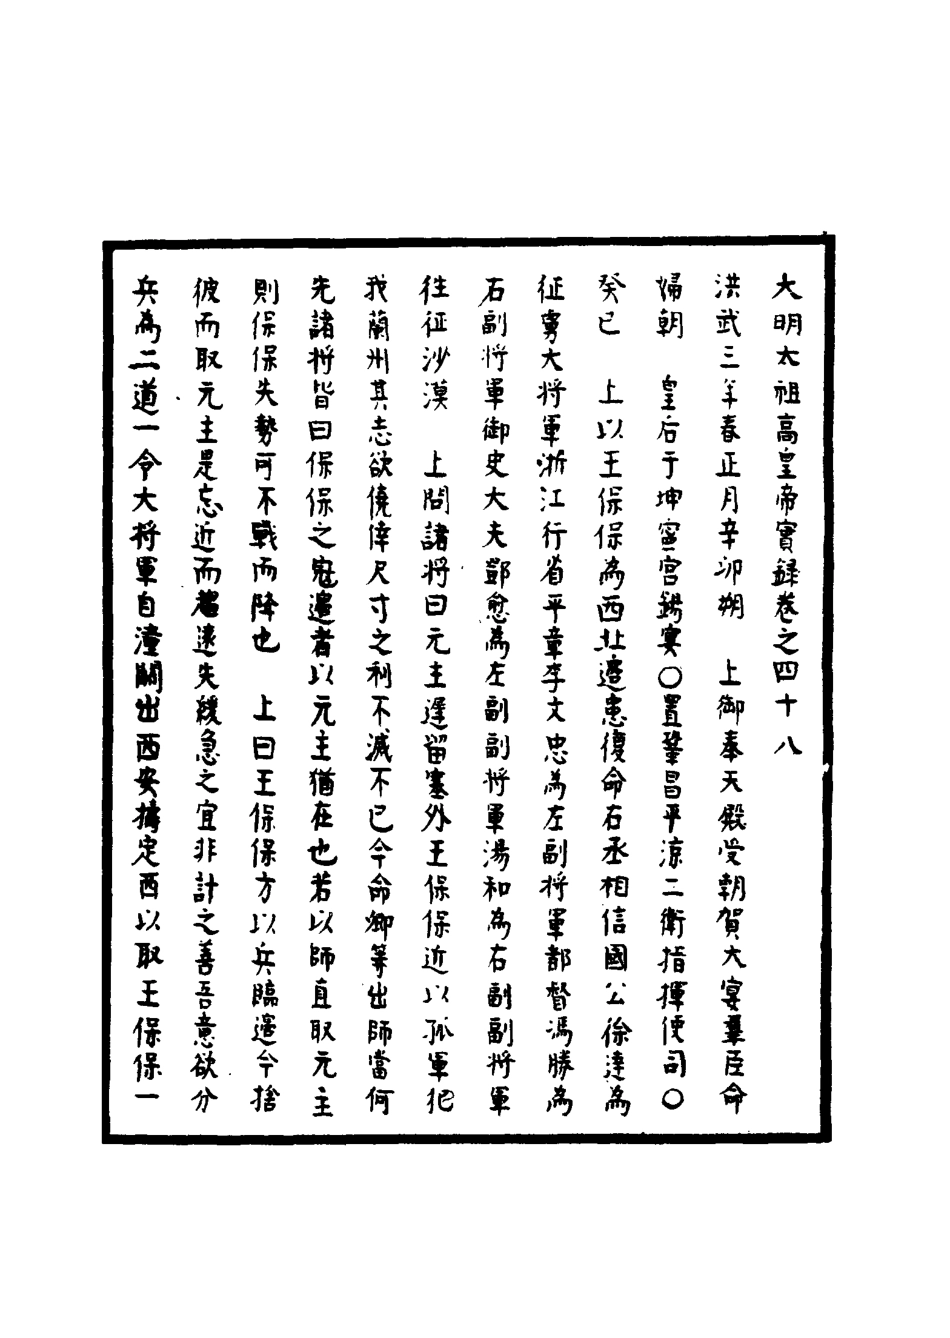 大明太祖高皇帝實録卷之四十八
洪武三年春正月辛卯朔　上御奉天殿受朝賀大宴羣臣命
婦朝　皇后于坤寧宮錫宴○置鞏昌平涼二衛指揮使司○
癸巳　上以王保保為西北邊患復命右丞相信國公徐達為
征虜大將軍浙江行省平章李文忠為左副將軍都督馮勝為
右副將軍御史大夫鄧愈為左副副將軍湯和為右副副將軍
往征沙漠　上問諸將曰元主遲留塞外王保保近以孤軍犯
我蘭州其志欲僥倖尺寸之利不滅不已今命卿等出師當何
先諸將皆曰保保之寇邊者以元主猶在也若以師直取元主
則保保失勢可不戰而降也　上曰王保保方以兵臨邊今捨
彼而取元主是忘近而趨遠失緩急之宜非計之善吾意欲分
兵為二道一令大將軍自潼關出西安擣定西以取王保保一